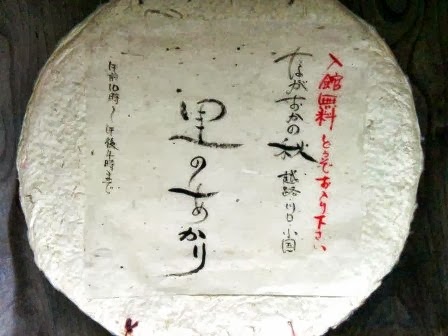 入館無料 どうぞお入り下さい
ながおかの秋 越路 川口 小国
里のあかり
午前10時〜午後4時まで